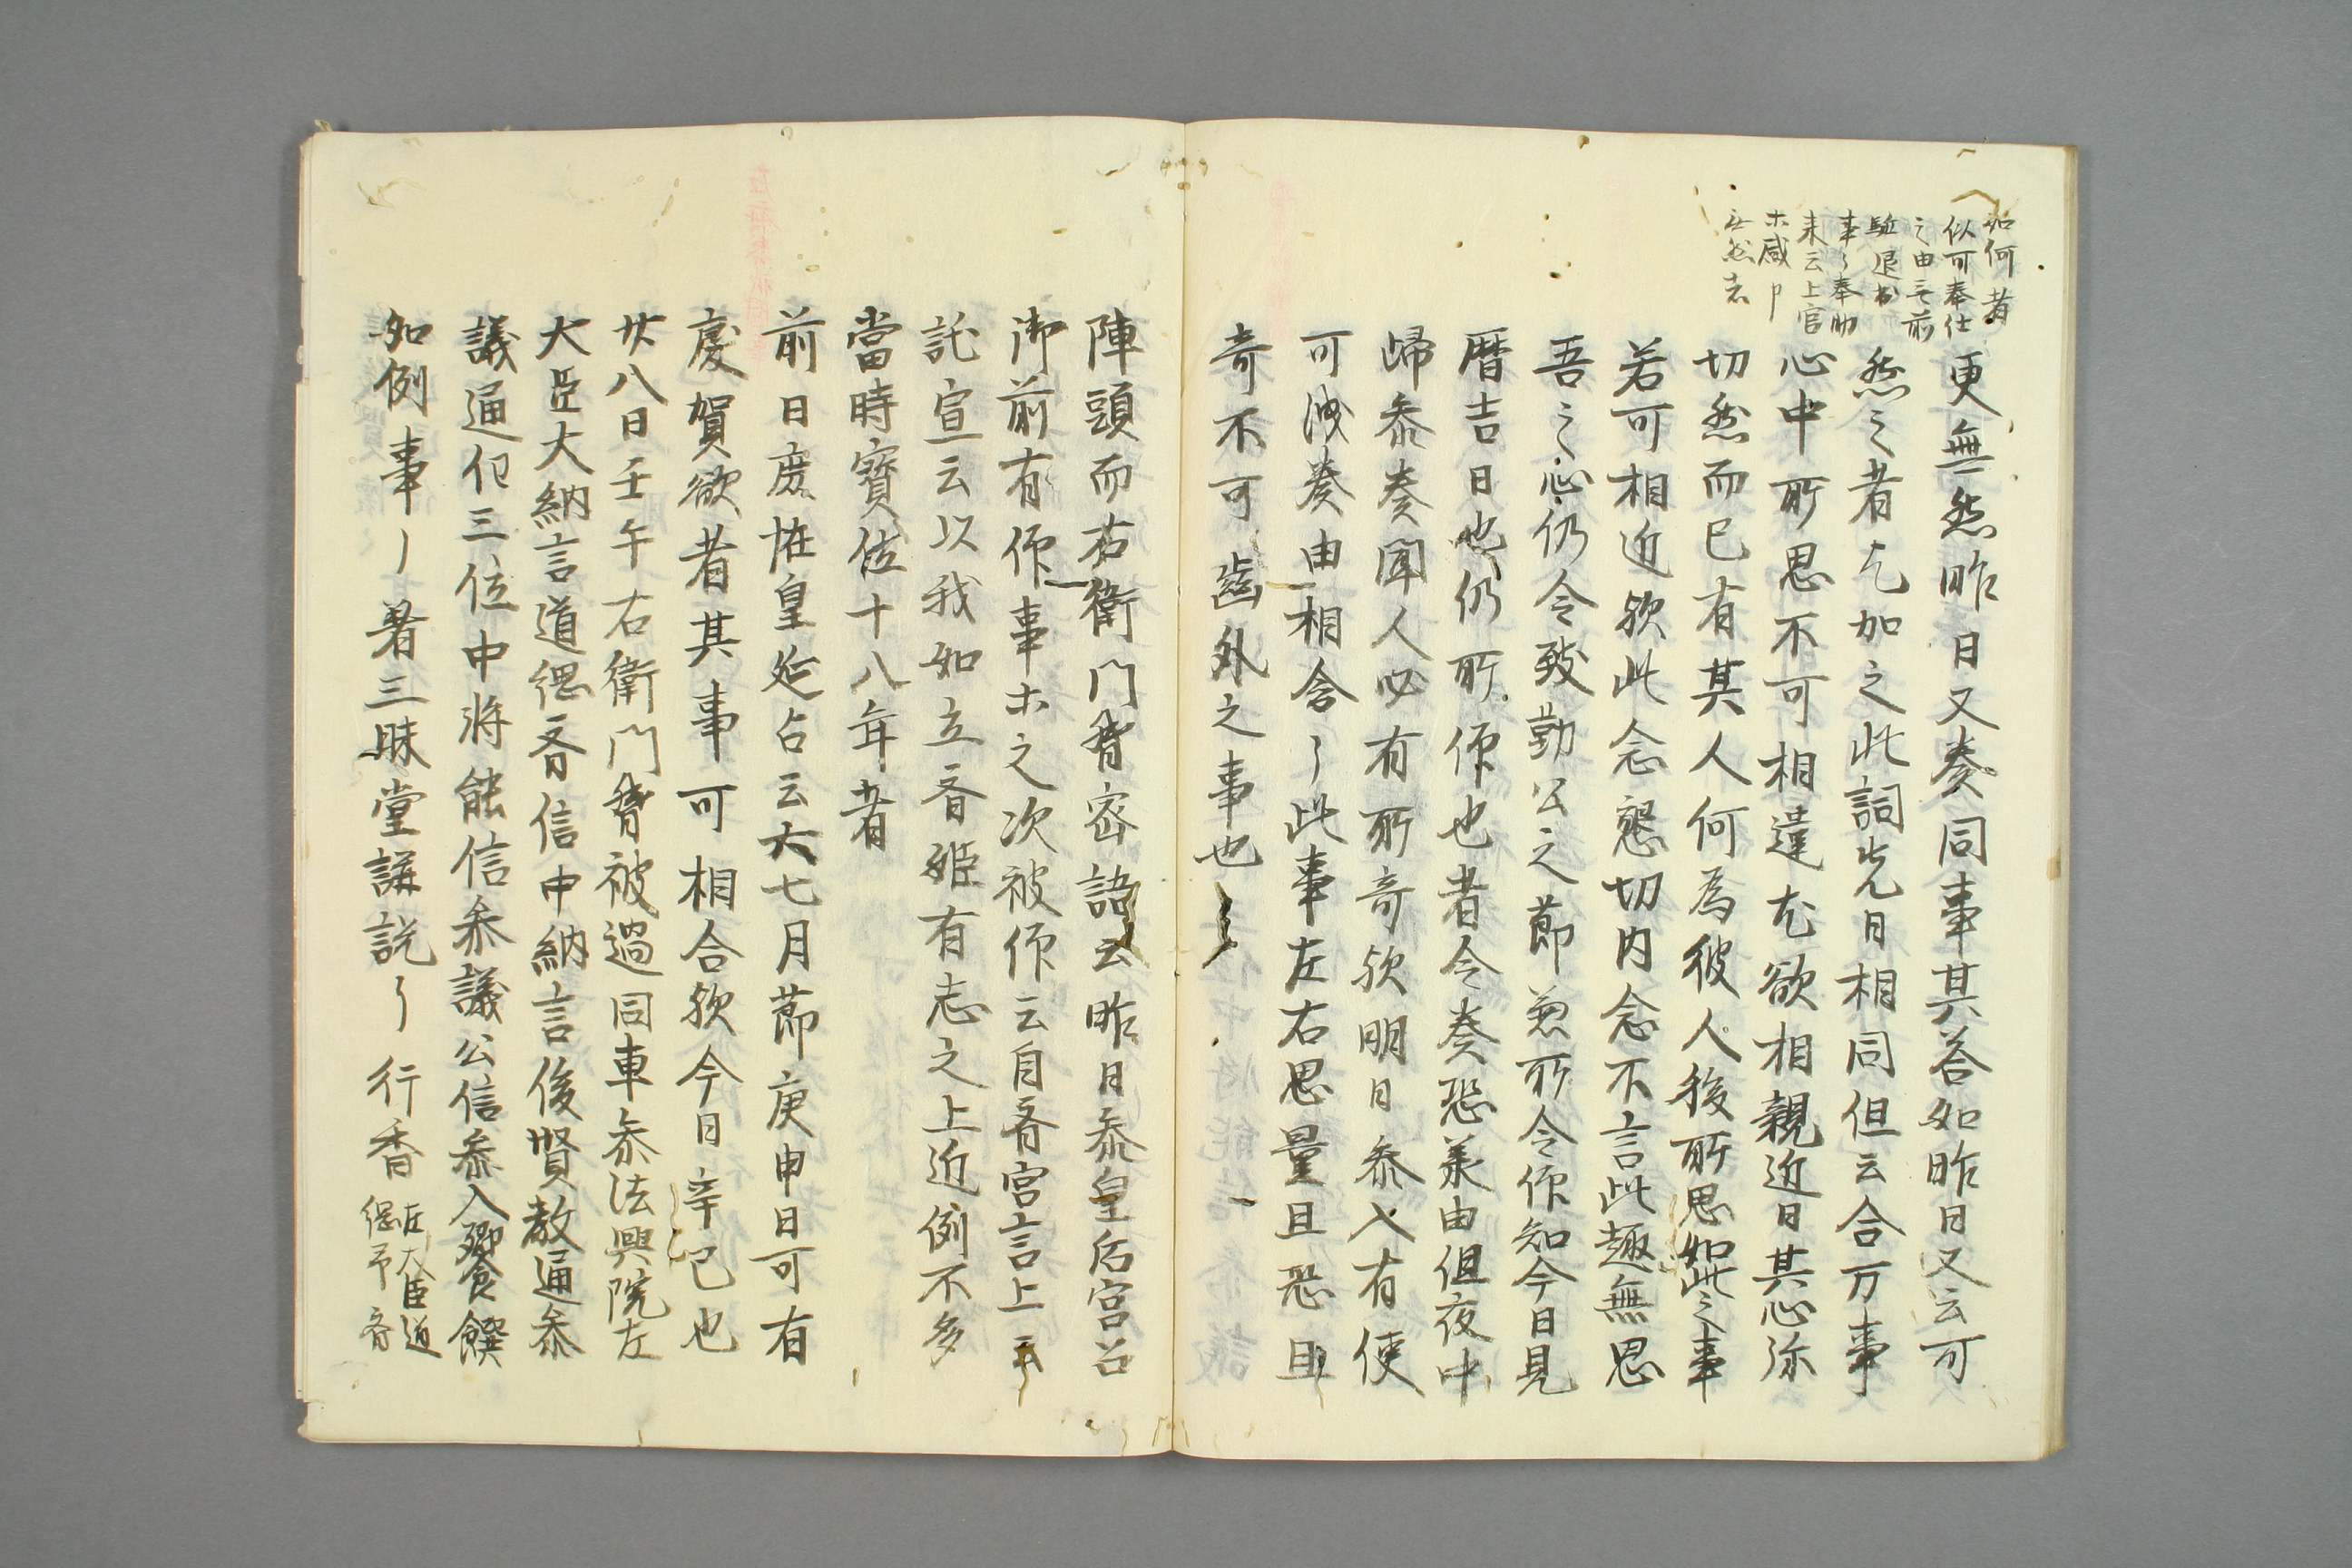 如何者
似可奉仕
之由

事了奉
来云上官
更無然昨日又奏同事其答如昨日又云可
然之者尤加之此詞先日相同但云合万事
心中所思不可相違尤欲相親近日其心弥
切然而已有其人何為彼人後所思如此之事
若可相近欤此念懇切内念不言此趣無思
吾之心仍令致勤公之節兼所令仰知今日見
暦吉日也仍所仰也者令奏恐美由但夜中
帰参奏聞人必有所奇欤明日参入有便
可洩奏由相含了此事左右思量且恐且
奇不可歯外之事也
陣頭而右衛門督密語云昨日参皇后宮召
御前有仰事木之次被仰云自斎宮言上云
託宣云以我如立斎姫有志之上近例不多
當時寶位十八年者
前日度恠皇延占云大七月節庚申日可有
慶賀欲者其事可相合欤今日辛巳也
廿八日壬午右衛門督被過同車参法興院左
大臣大納言道綱斉信中納言俊賢教通参
議通任三位中将能信参議公信参入饗饌
如例事了着三昧堂講説了行香左大臣道
綱斉